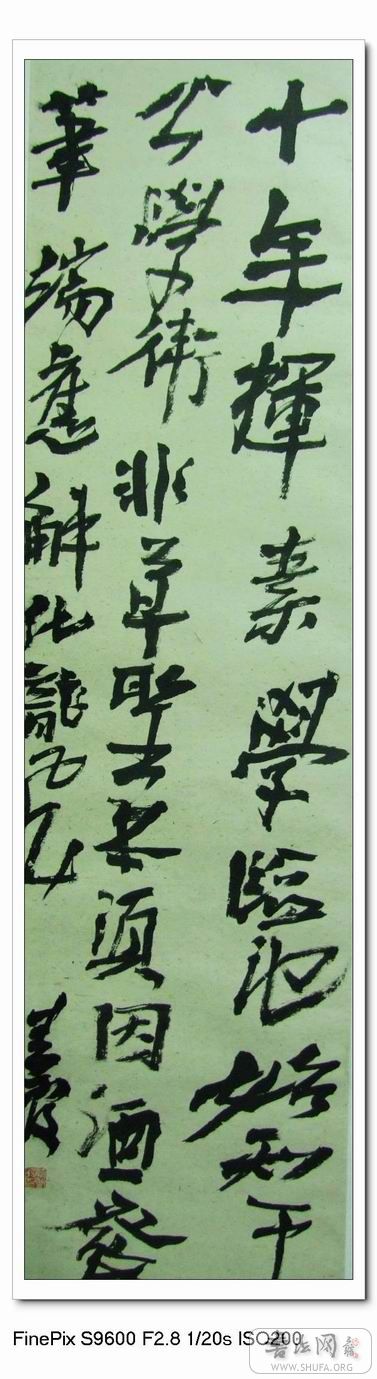 十年揮素學臨池始知王
公學衛非草聖本須因酒發
筆端應解化龍飛
FinePix S9600 F2.8 1/20s ISO200
書法网
WWW.SHUFA.ORG